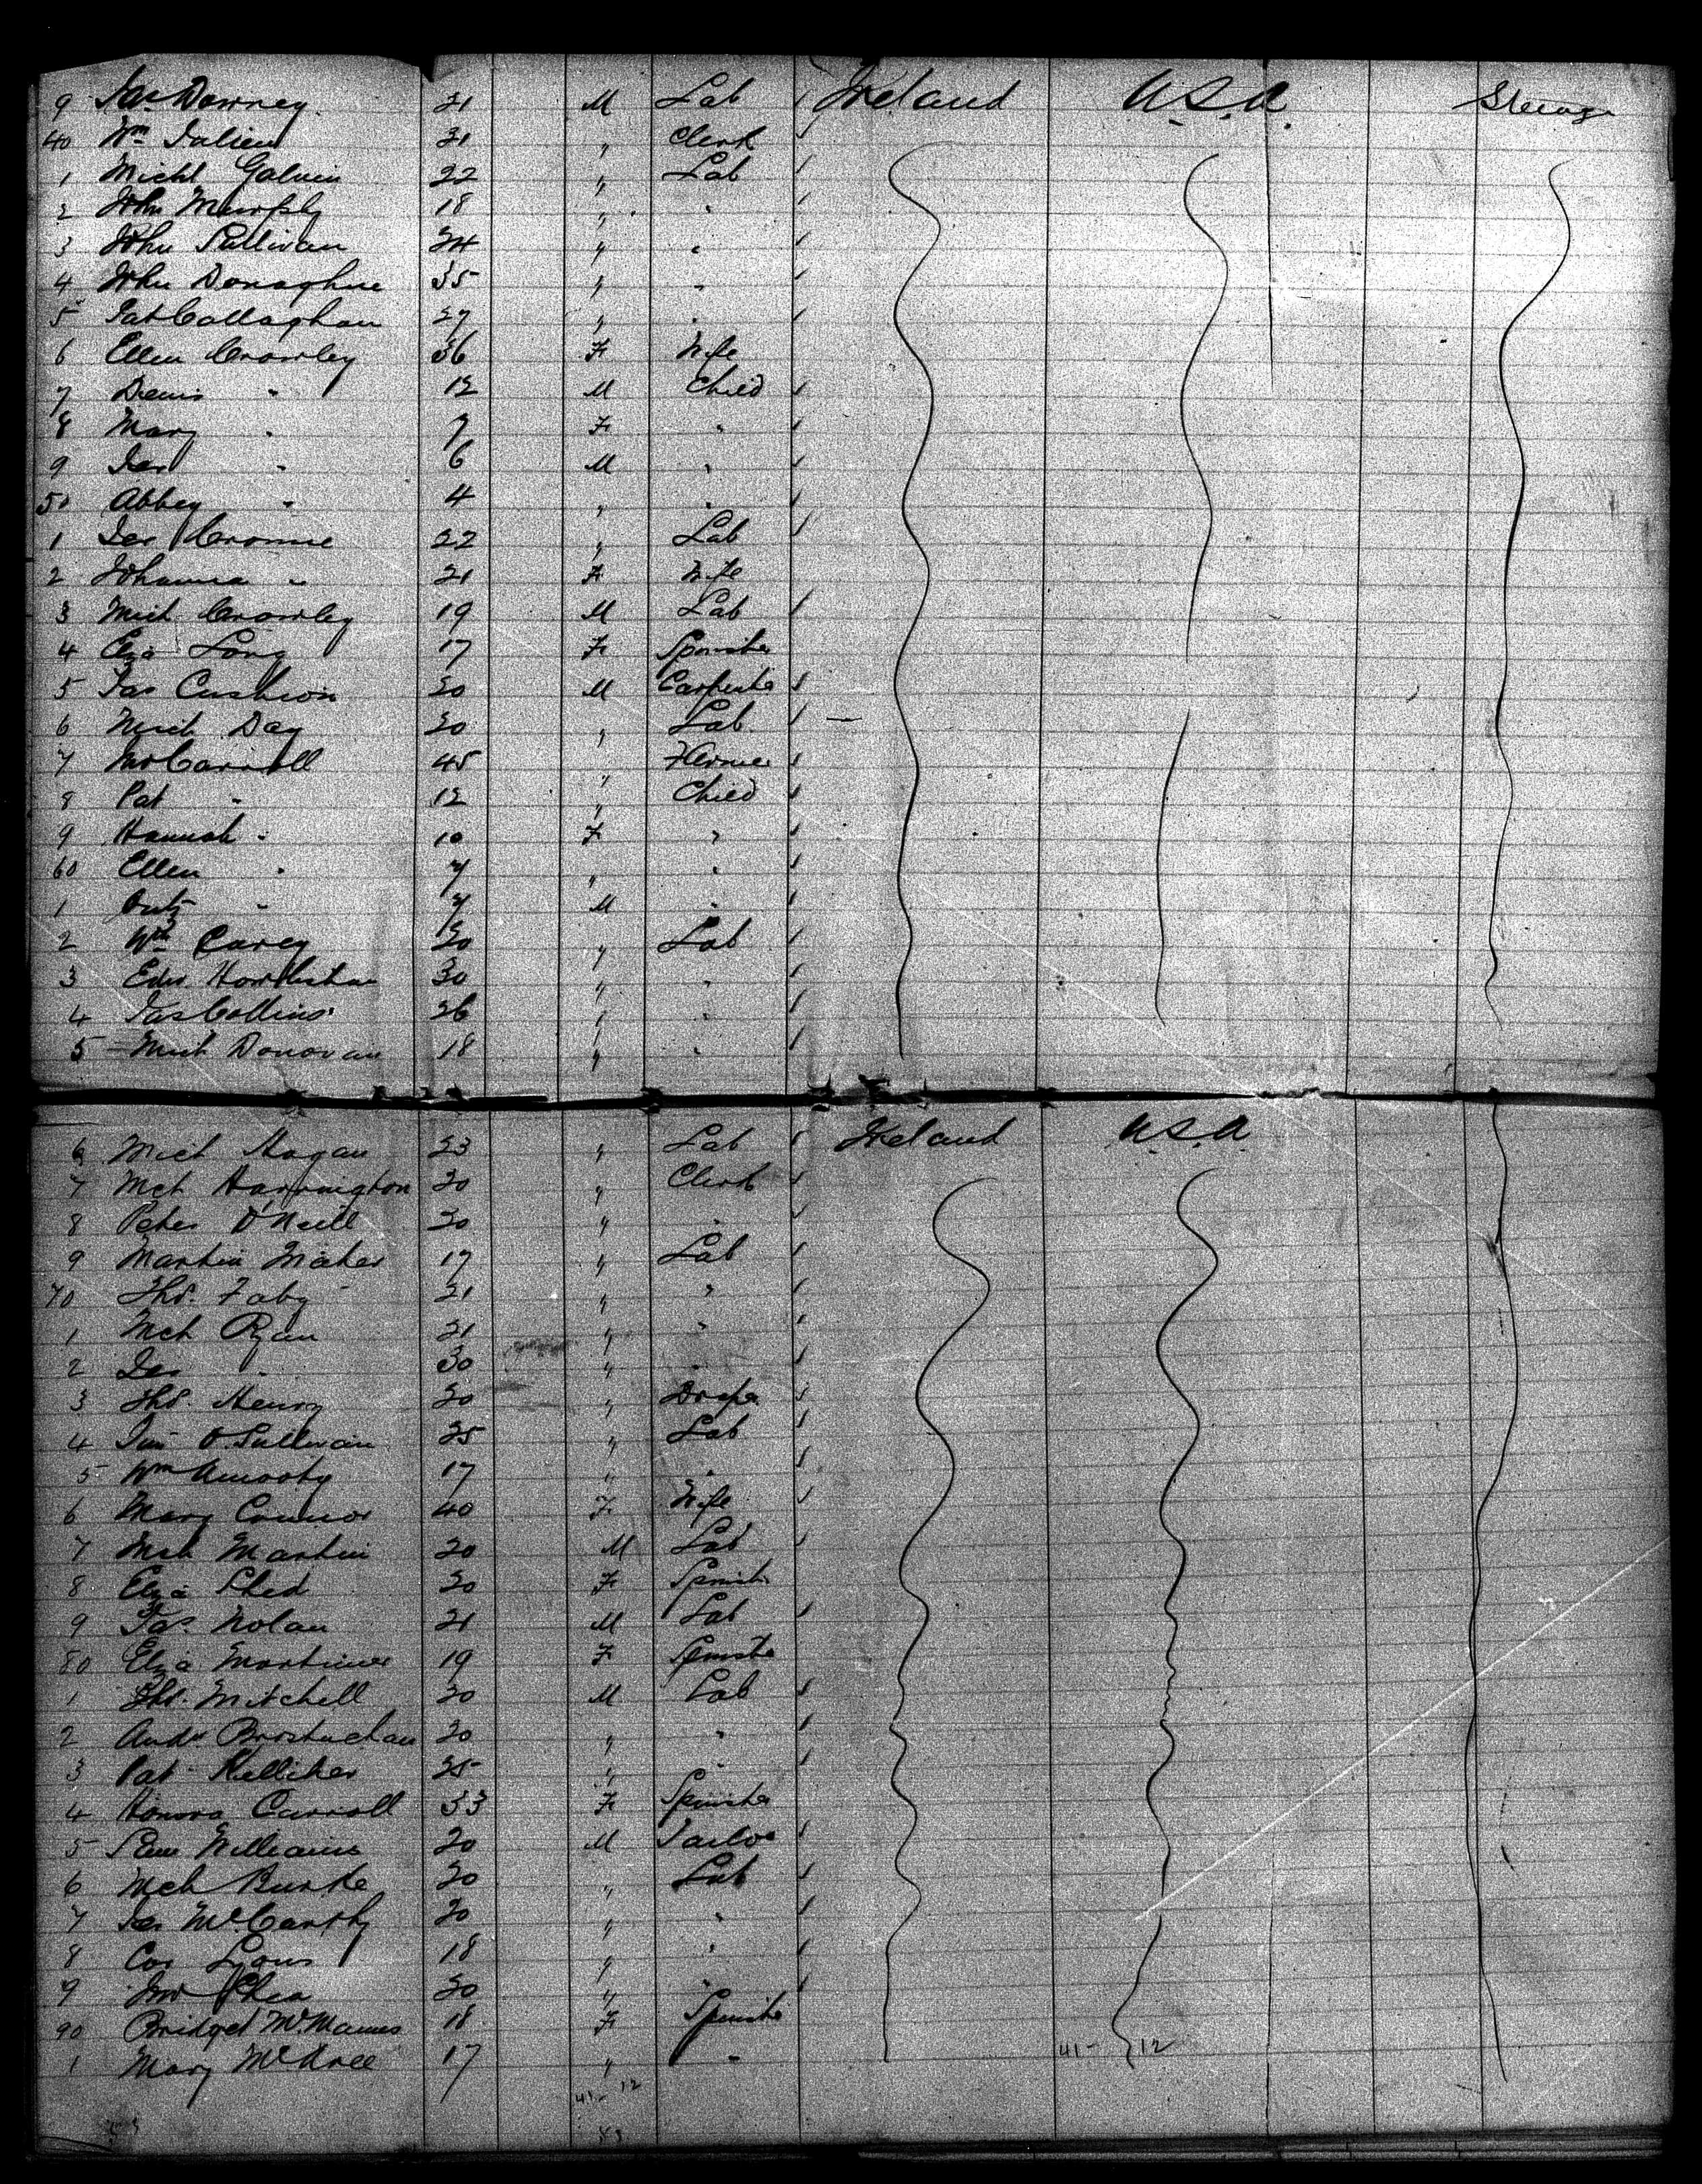 9 Jas Downey 21 M Lab Ireland U.S.A. Steerage
40 Wm 21 " Clerk
1 Michl Galvin 22 " Lab
2 John Murphy 18 " "
3 John Sullivan 24 " "
4 John Donaghue 35 " "
5 Pat Callaghan 27 " "
6 Ellen Crowley 36 F Wife
7 Denis " 12 M Child
8 Mary " 7 F "
9 Jer " 6 M "
50 Abbey " 4 " "
1 Jer 22 " Lab
2 Johanna " 21 F Wife
3 Mich Crowley 19 M Lab
4 Eliza Long 17 F Spinster
5 Jas Cushion 20 M Carpenter
6 Mich Day 20 " Lab
7 Carroll 45 "
8 Pat " 12 " Child
9 Hannah " 10 F "
60 Ellen " 7 " "
1 " M "
2 Wm Carey 20 " Lab
3 Edw 30 " "
4 Jas Collins 26 " "
5 Mich Donovan 18 " "
6 Mich Hogan 23 " Lab Ireland U.S.A.
7 Mch Harrington 20 " Clerk
8 Peter O'Neill 20 " "
9 Martin Maher 17 " Lab
70 Thos. Fahy 21 " "
1 Mch Ryan 21 " "
2 Jer " 30 " "
3 Thos. Henry 20 " Draper
4 Tim O.Sullivan 25 " Lab
5 Wm 17 " "
6 Mary Connor 40 F Wife
7 Mch Martin 20 M Lab
8 Eliza 20 F Spinst
9 Jas Nolan 21 M Lab
80 Eliza Mortimer 19 F Spinster
1 Thos. Mitchell 20 M Lab
2 Andw 20 " "
3 Pat Kelliher 25 " "
4 Honora Carroll 33 F Spinster
5 Williams 20 M Tailor
6 Mch Burke 20 " Lab
7 Jer McCarthy 20 " "
8 Cor Lyons 18 " "
9 Shea 20 " "
90 Bridget McManus 18 F Spinster
1 Mary 17 " "
41- 12
41- 12